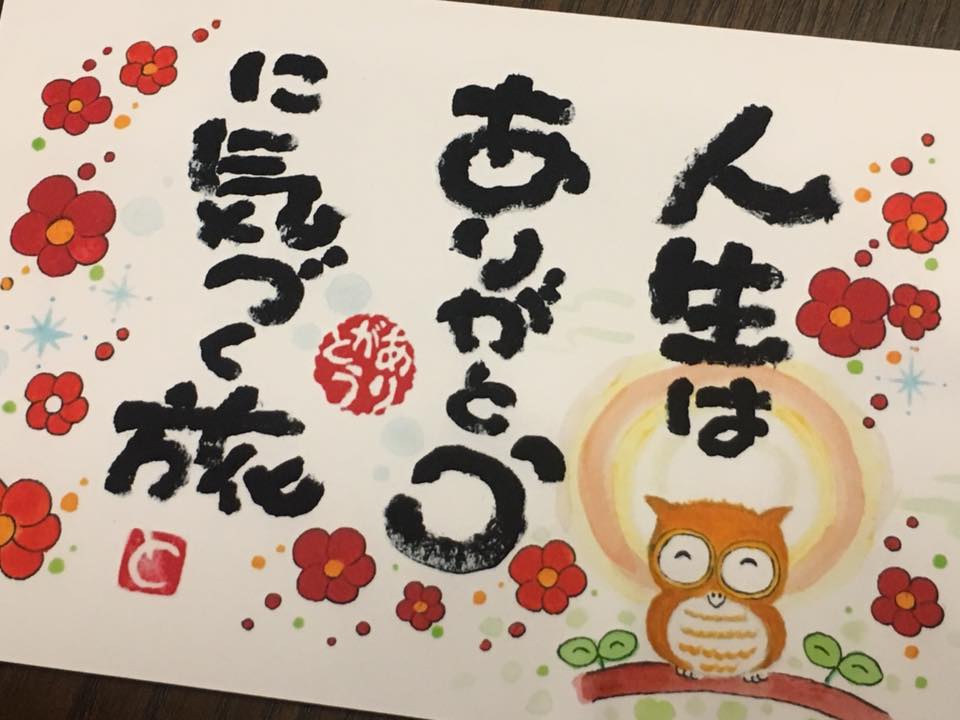 人生は
ありがとう
に気づく旅
ありがとう
と